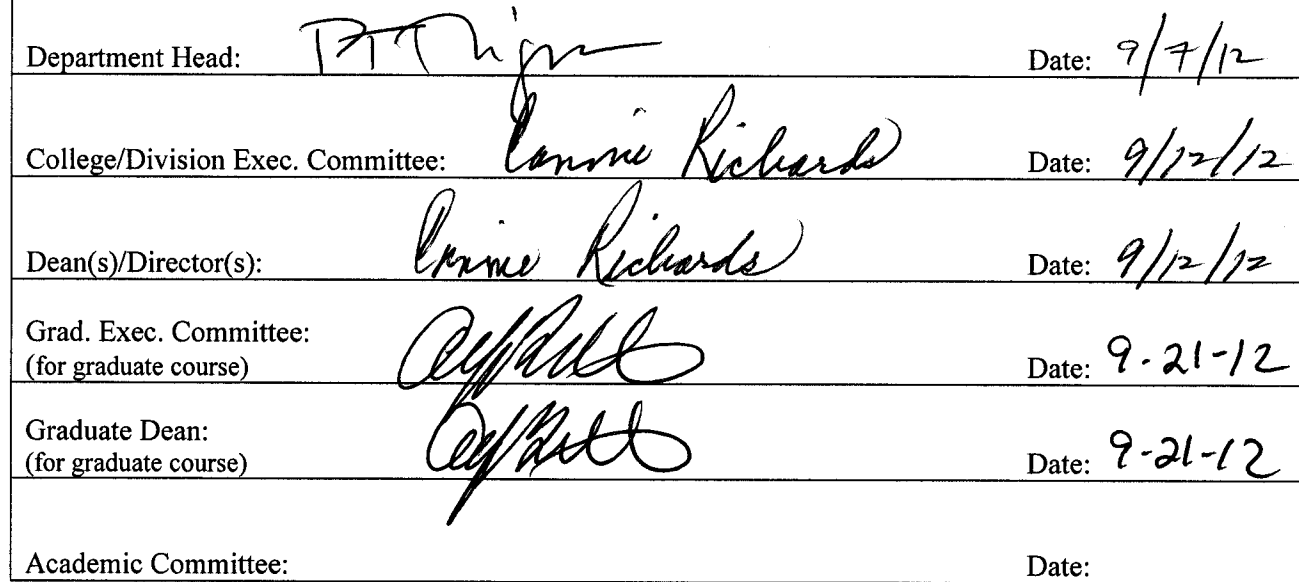 Department Head: Date: 9/7/12
College/Division Exec. Committee: Connie Richards Date: 9/12/12
Dean(s)/Director(s): Connie Richards Date: 9/12/12
Grad. Exec. Committee:
(for graduate course) Date: 9-21-12
Graduate Dean:
(for graduate course) Date: 9-21-12
Academic Committee: Date: